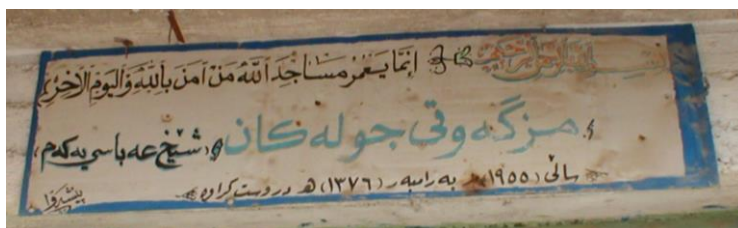 بسم الله الرحمن الرحيم إنَّمَا يَعْمُرُ مَسَاجِدَ اللَّهِ مَنْ آمَنَ بِاللَّهِ وَالْيَوْمِ الْآخِرِ
مزگه‌وتی جوله‌كان (شێخ عه‌باسي يه‌كه‌م)
ساڵی (١٩٥٥) به‌رامبه‌ر (١٣٧٦) هـ دروست كراوه